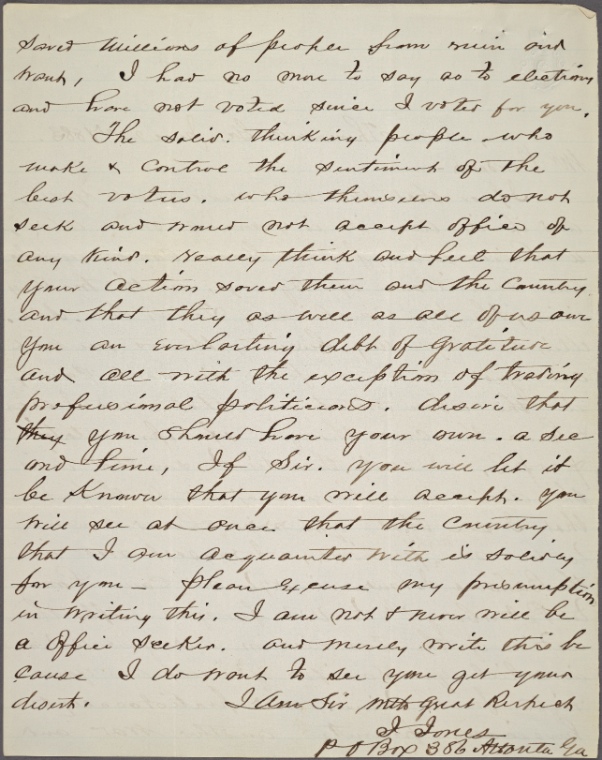 saved Millions of people from ruin and
want, I had no more to say as to elections
and have not voted since I voted for you.
The solid. thinking people who
make & control the sentiment of the
best voters. who themselves do not
seek and would not accept office of
any kind. really think and feel that
your action saved them and the Country
and that they as well as all of us owe
you an Everlasting debt of Gratitude
and all with the exception of trading
professional politicians. desire that
they you should have your own. a sec
ond time, If Sir. you will let it
be Known that you will accept. you
will see at once that the Country
that I am acquainted with is solidly
for you — please Excuse my presumption
in writing this. I am not & never will be
a office seeker. and merely write this be
cause I do want to see you get your
desert. I Am Sir with Great Respect
J Jones
P O Box 386 Atlanta Ga